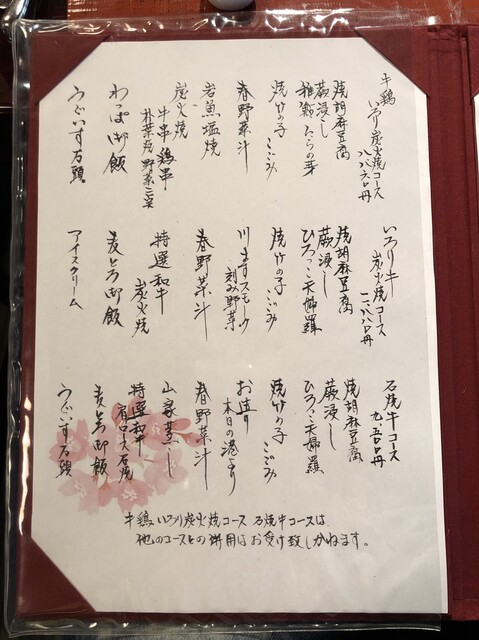 牛鶏いろり炭火焼コース
八、八六〇円
焼胡麻豆腐
蕨浸し
稚鮎 たらの芽
焼竹の子 こごみ
春野菜汁
岩魚塩焼
炭火焼
牛串 鶏串
朴葉焼 野菜三宝
わっぱ御飯
うぐいす万頭
いろり牛
炭火焼コース
焼胡麻豆腐
蕨浸し
ひろっこ天婦羅
焼竹の子 こごみ
川ますスモーク
刻み野菜
春野菜汁
特選和牛
炭火焼
麦とろ御飯
アイスクリーム
石焼牛コース
焼胡麻豆腐
蕨浸し
ひろっこ天婦羅
焼竹の子 こごみ
お造り
本日の港より
春野菜汁
山家蒸し
特選和牛
肩ロース石焼
麦とろ御飯
うぐいす万頭
牛鶏いろり炭火焼コース 石焼牛コースは
他のコースとの併用はお受け致しかねます。